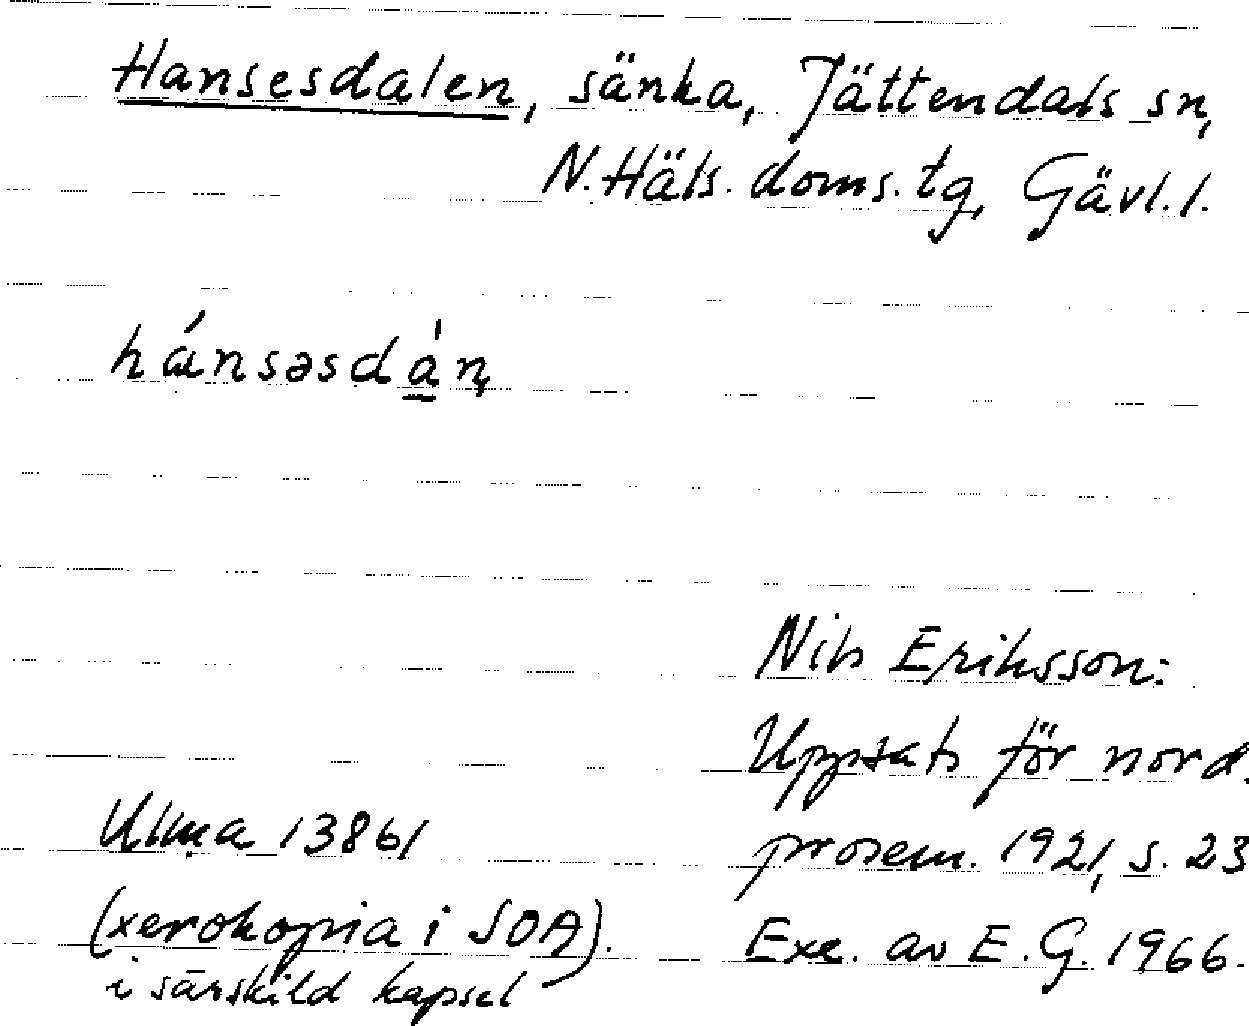 Hansesdalen, sänka, Jättendals sn,
N. Häls. doms. tg, Gävl. l.
hánsəsdàn̥
Nils Eriksson:
Uppsats för nord.
prosem. 1921, s. 23
Exc. av E. G. 1966.
Ulma 13861
(xerokopia i SOA).
i särskild kapsel